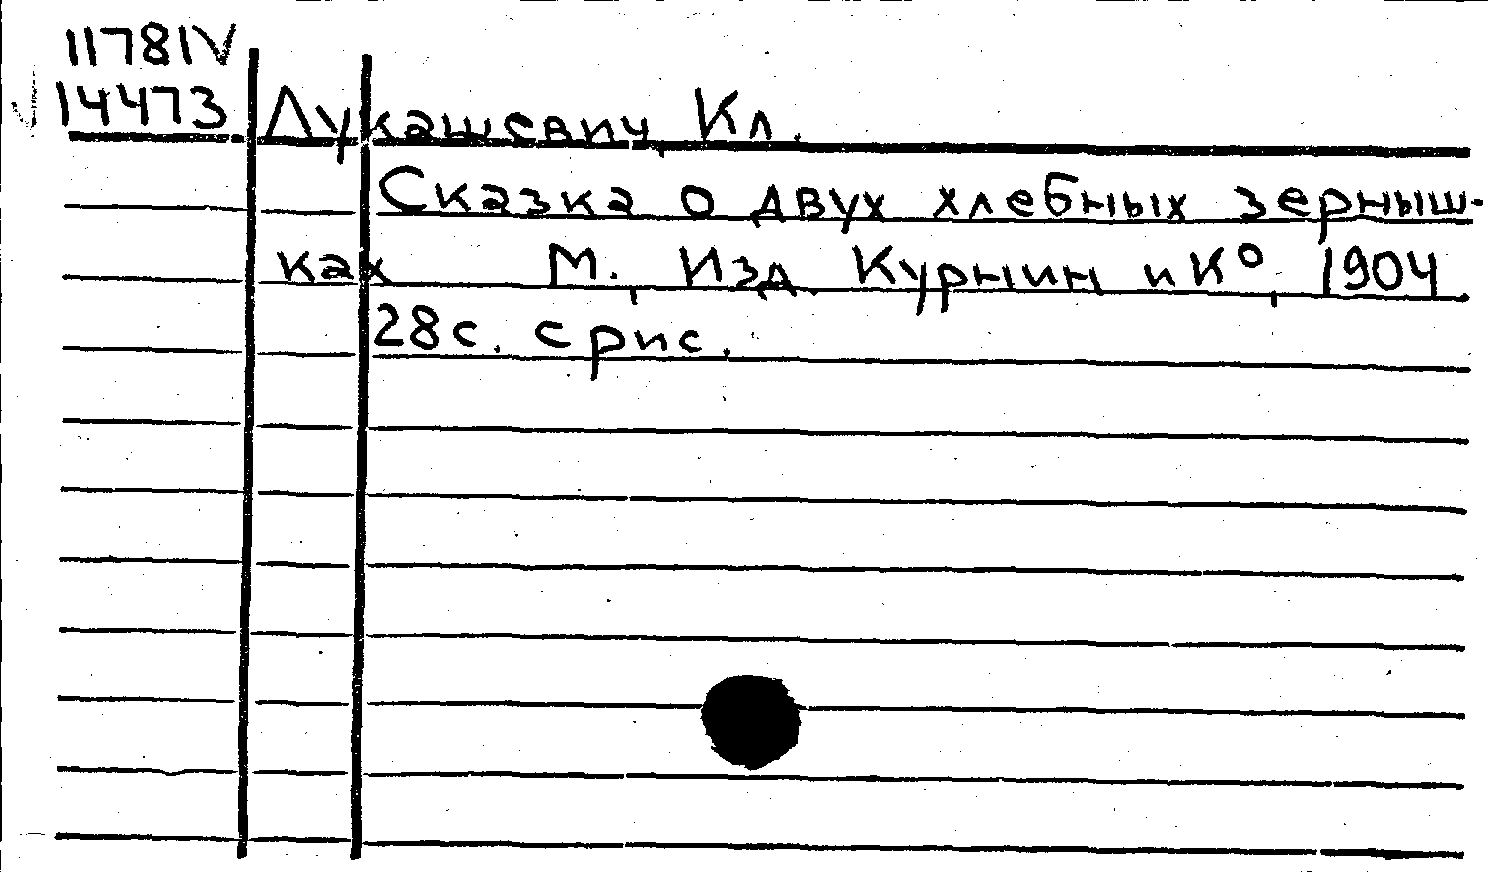 11781V
14473 Лукашевич, Кл.
Сказка о двух хлебных зерныш-
ках М., Изд. Курнин и К°, 1904
28 с. с рис.